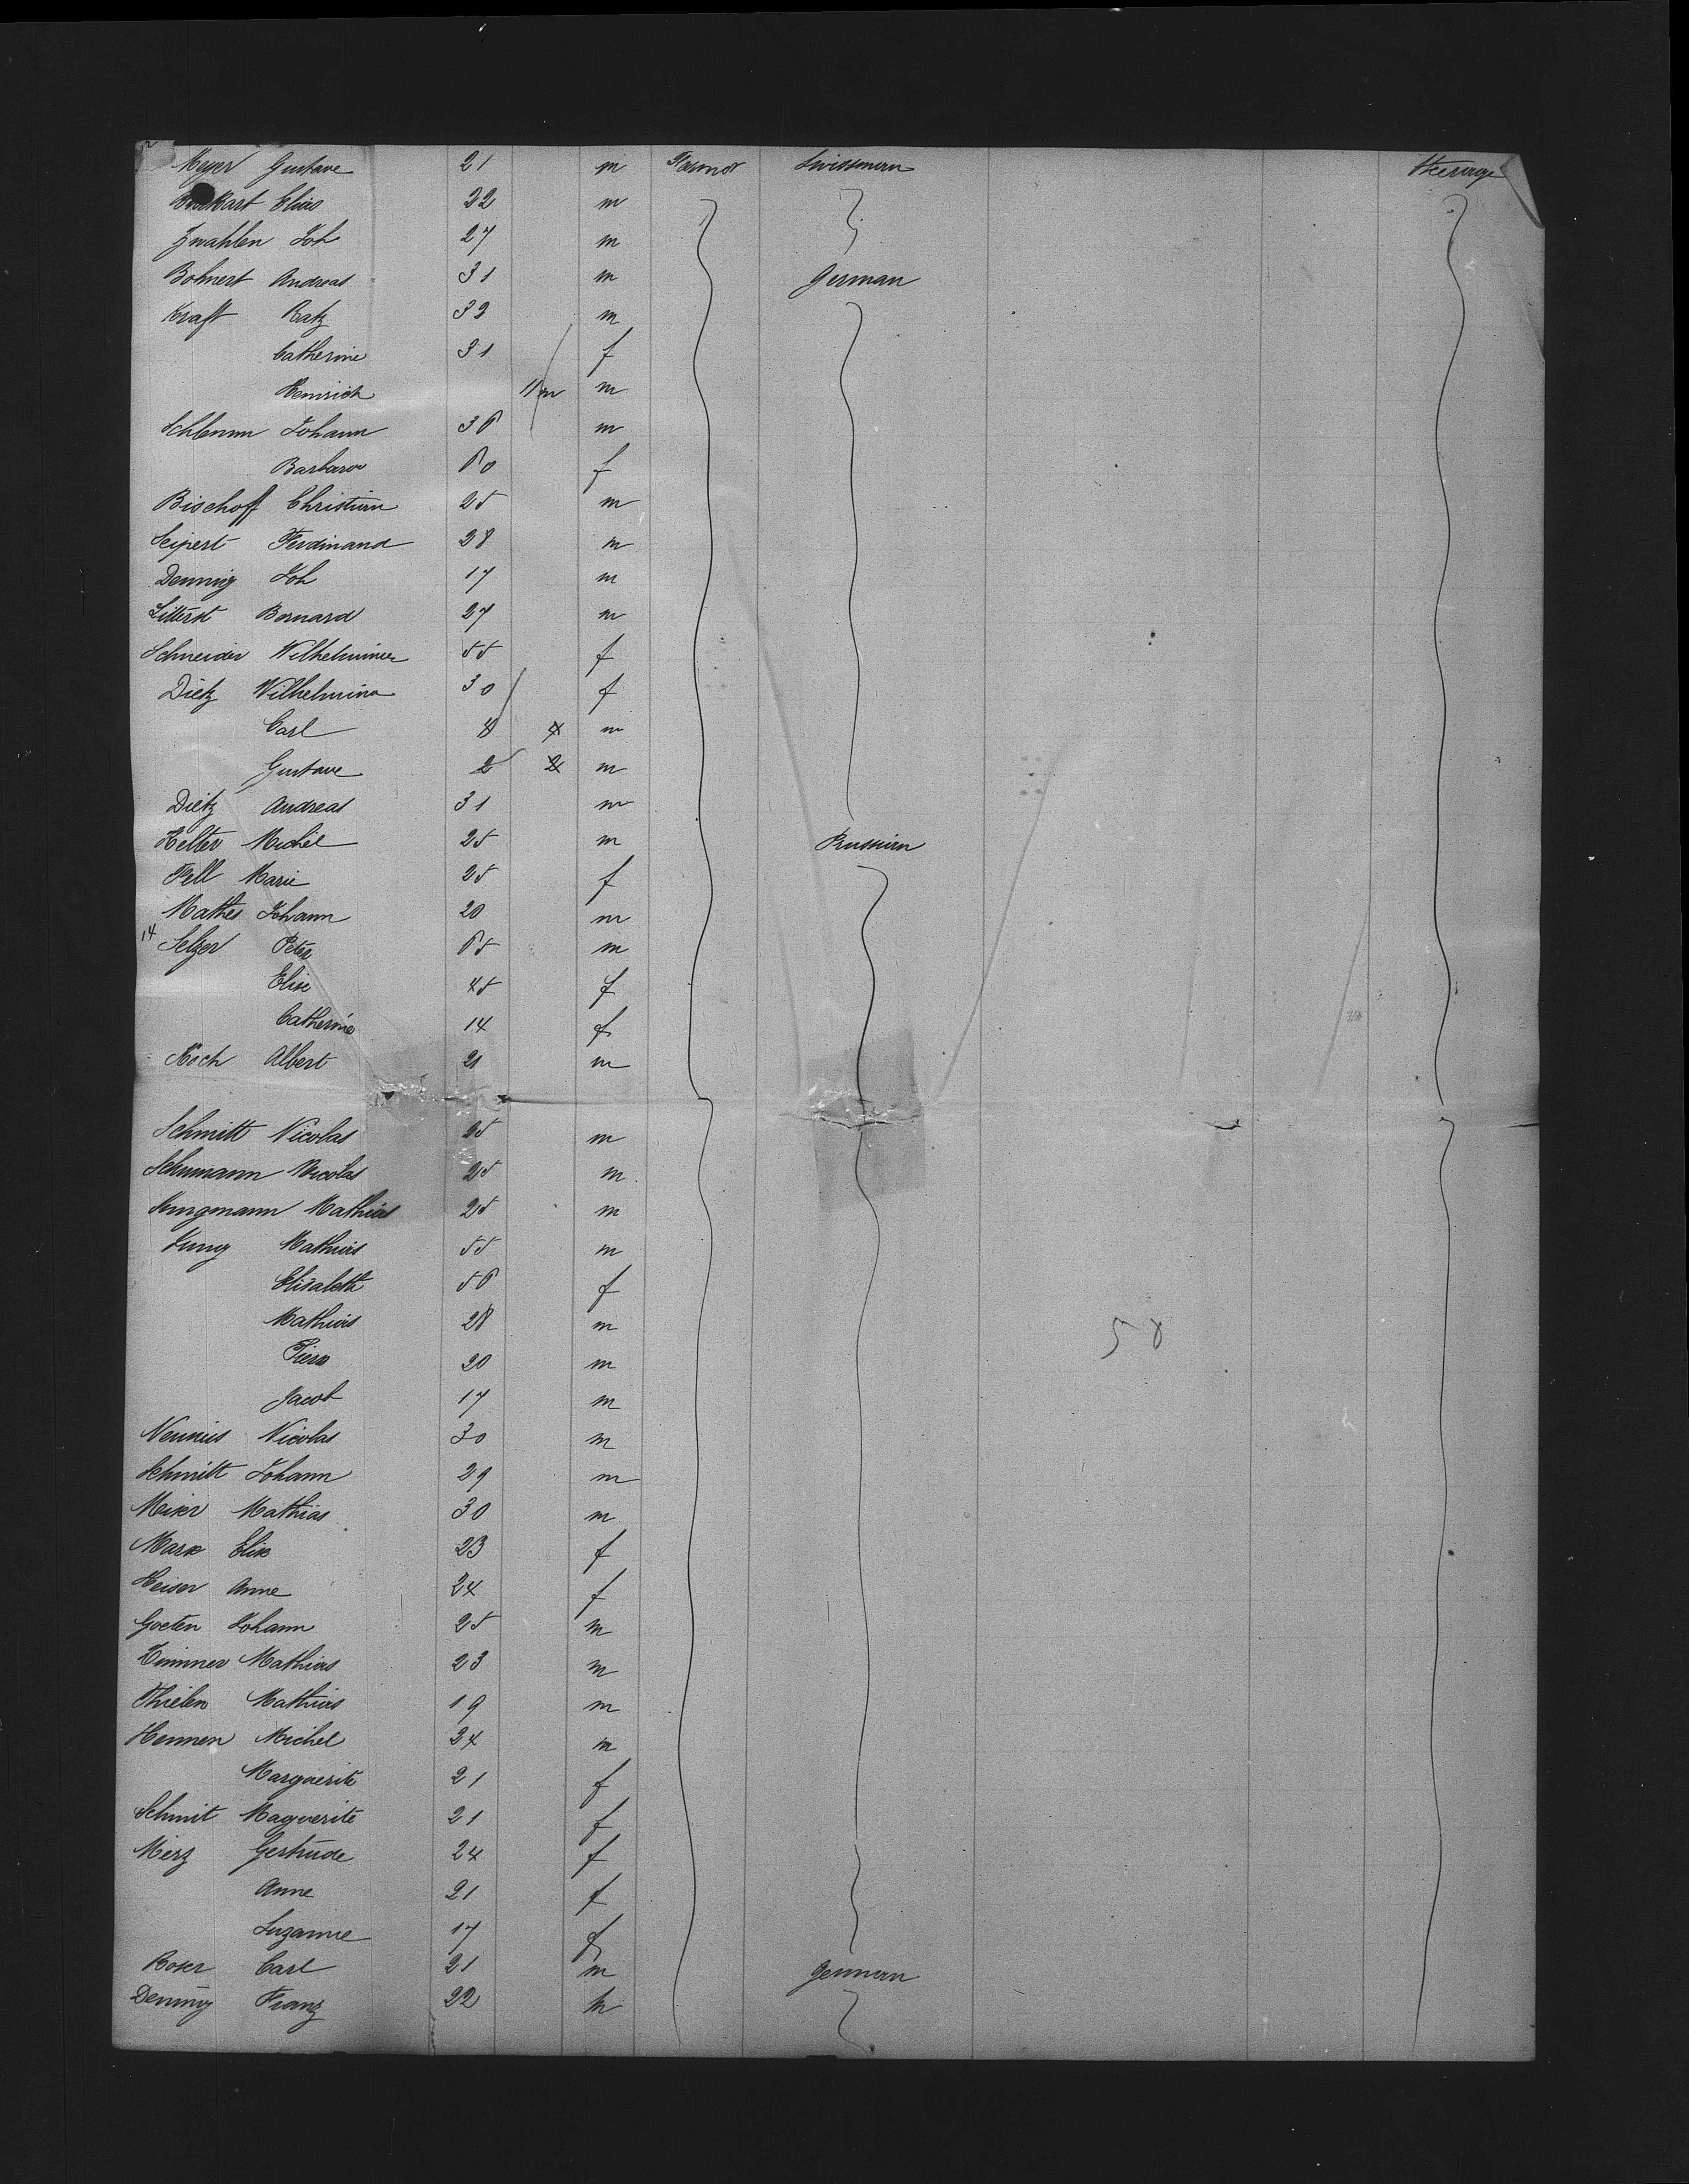 Meyer Gustave 21 m Farmer Swissman Steerage
Burkhart Elias 32 m
Zwahlen Joh 27 m
Bohnert Andreas 31 m German
Kraft Batz 32 m
Catherine 31 f
Heinrich 11 m m
Schlemm Johann 36 m
Barbara 60 f
Bischoff Christian 25 m
Seipert Ferdinand 28 m
Denning Joh 17 m
Litterst Bernard 27 m
Schneider Wilhelmine 55 f
Dietz Wilhelmina 30 f
Carl 4 m
Gustave 2 2 m
Dietz Andreas 31 m
Helter Michel 25 m Prussian
Fell Marie 25 f
Mathes Johann 20 m
14 Selzer Peter 65 m
Elise 45 f
Catherine 14 f
Koch Albert 21 m
Schmitt Nicolas 25 m
Schumann Nicolas 25 m
Jungmann Mathias 25 m
Jung Mathias 55 m
Elisabeth 56 f
Mathias 28 m
20 m
Jacob 17 m
Nicolas 30 m
Schmitt Johann 29 m
Meier Mathias 30 m
Marx Elise 23 f
Heiser Anne 24 f
Goeten Johann 25 m
Zimmer Mathias 23 m
Thielen Mathias 19 m
Hennen Michel 24 m
Marguerite 21 f
Schmit Maguerite 21 f
Merz Gertrude 24 f
Anne 21 f
Suzanne 17 f
Boser Carl 21 m German
Denning Franz 22 m
58